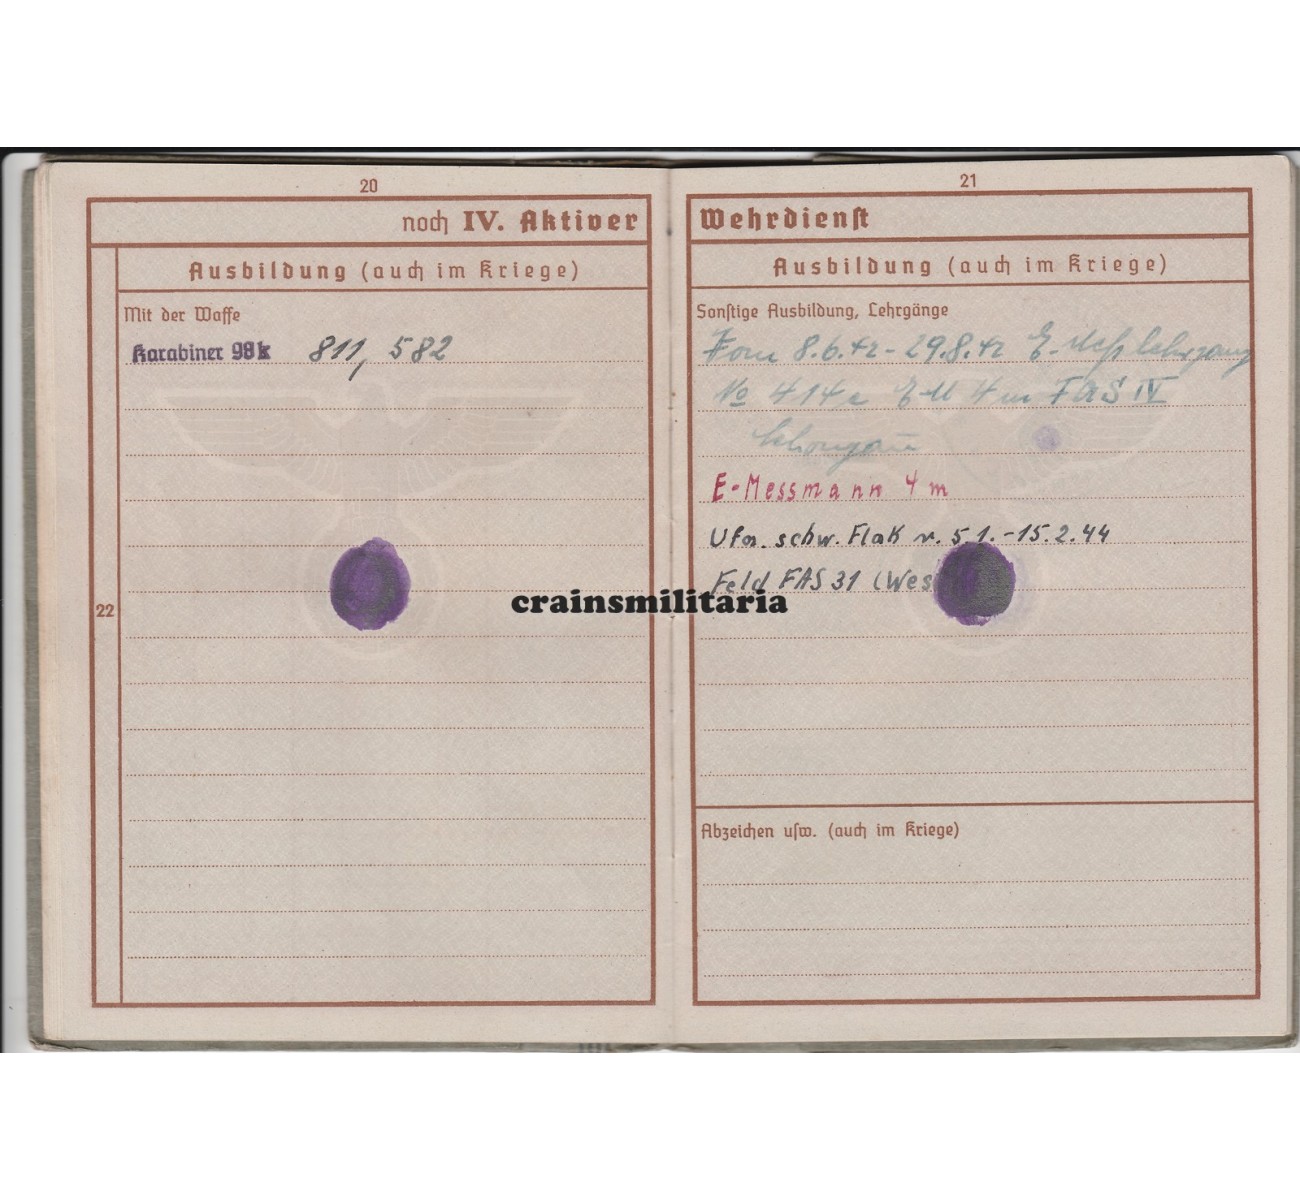 20
noch IV. Aktiver
Ausbildung (auch im Kriege)
Mit der Waffe
Karabiner 98k 811, 582
22
21
Wehrdienst
Ausbildung (auch im Kriege)
Sonstige Ausbildung, Lehrgänge
Vom 8.6.42 - 29.8.42 E. Meßlehrgang
No 414a E-M 4 m FAS IV
Schongau
E-Messmann 4 m
schw. Flak v. 5.1.-15.2.44
Feld FAS 31 (Wes
Abzeichen usw. (auch im Kriege)
crainsmilitaria